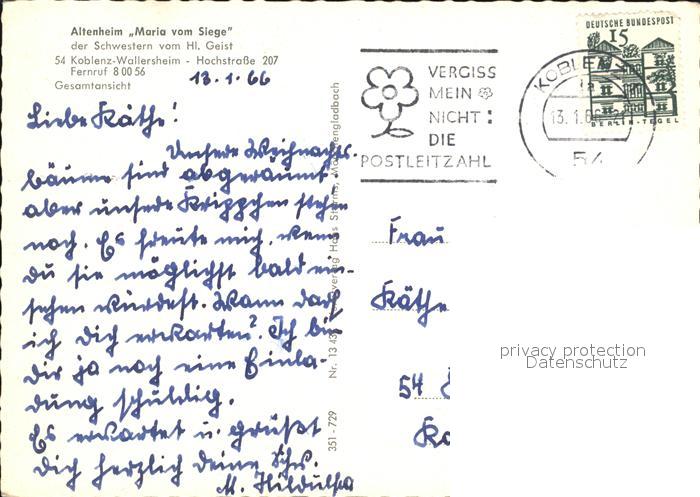 Altenheim „Maria vom Siege"
der Schwestern vom Hl. Geist
54 Koblenz-Wallersheim - Hochstraße 207
Fernruf 8 00 56
Gesamtansicht
13.1.66
Liebe Käthe!
Unsere Weihnachts-
bäume sind abgeräumt
aber unsere Krippchen stehen
noch. Es freute mich, wenn
du sie möglichst bald ein-
sehen würdest. Wann darf
ich dich erwarten? Ich bin
dir ja noch eine Einla-
dung schuldig.
Es erwartet u. grüßt
dich herzlich deine Schw.
M. Hildulfa
351 - 729 Nr. 13 43 verlag Hans
VERGISS
MEIN
NICHT:
DIE
POSTLEITZAHL
KOBLENZ
13.1.66
54
DEUTSCHE BUNDESPOST
15
BERLIN-TEGEL
Frau
Käthe
54
Ko
privacy protection
Datenschutz